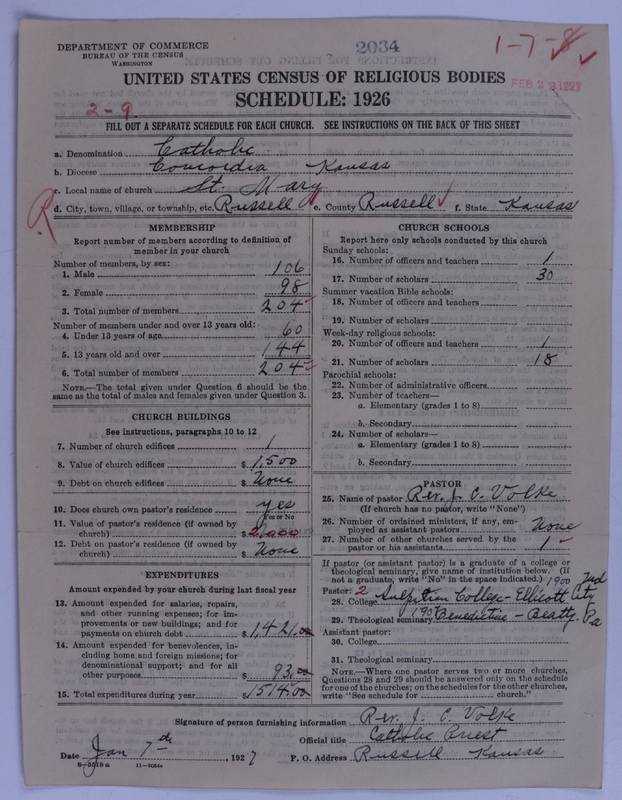 DEPARTMENT OF COMMERCE
BUREAU OF THE CENSUS
WASHINGTON
2034
1-7-8
UNITED STATES CENSUS OF RELIGIOUS BODIES
FEB 2 1927
SCHEDULE: 1926
2-9
FILL OUT A SEPARATE SCHEDULE FOR EACH CHURCH. SEE INSTRUCTIONS ON THE BACK OF THIS SHEET
a. Denomination Catholic
b. Diocese Concordia Kansas
c. Local name of church St. Mary
R
d. City, town, village, or township, etc. Russell e. County Russell f. State Kansas
MEMBERSHIP
Report number of members according to definition of
member in your church
Number of members, by sex:
1. Male 106
2. Female 98
3. Total number of members 204
Number of members under and over 13 years old:
4. Under 13 years of age 60
5. 13 years old and over 144
6. Total number of members 204
NOTE.—The total given under Question 6 should be
same as the total of males and females given under Question 3.
CHURCH BUILDINGS
See instructions, paragraphs 10 to 12
7. Number of church edifices 1
8. Value of church edifices $ 1,500
9. Debt on church edifices $ None
10. Does church own pastor's residence yes
Yes or No
11. Value of pastor's residence (if owned by
church) $ 2,000
12. Debt on pastor's residence (if owned by
church) $ None
EXPENDITURES
Amount expended by your church during last fiscal year
13. Amount expended for salaries, repairs,
and other running expenses; for im-
provements or new buildings; and for
payments on church debt $ 1,421.00
14. Amount expended for benevolences, in-
cluding home and foreign missions; for
denominational support; and for all
other purposes $ 93.00
15. Total expenditures during year $ 1514.00
CHURCH SCHOOLS
Report here only schools conducted by this church
Sunday schools:
16. Number of officers and teachers 1
17. Number of scholars 30
Summer vacation Bible schools:
18. Number of officers and teachers
19. Number of scholars
Week-day religious schools:
20. Number of officers and teachers 1
21. Number of scholars 18
Parochial schools:
22. Number of administrative officers
23. Number of teachers—
a. Elementary (grades 1 to 8)
b. Secondary
24. Number of scholars—
a. Elementary (grades 1 to 8)
b. Secondary
PASTOR
25. Name of pastor Rev. J. C. Volke
(If church has no pastor, write "None")
26. Number of ordained ministers, if any, em-
ployed as assistant pastors None
27. Number of other churches served by the
pastor or his assistants 1
If pastor (or assistant pastor) is a graduate of a college or
theological seminary, give name of institution below. (If
not a graduate, write "No" in the space indicated.) 1900
Pastor: 2
28. College Sulpitian College - Ellicott City Md
29. Theological seminary Benedictine - Beatty Pa
Assistant pastor:
30. College
31. Theological seminary
NOTE.—Where one pastor serves two or more churches,
Questions 28 and 29 should be answered only on the schedule
for one of the churches; on the schedules for the other churches,
write "See schedule for church."
Signature of person furnishing information Rev. J. C. Volke
Official title Catholic Priest
Date Jan 7th, 1927 P. O. Address Russell Kansas